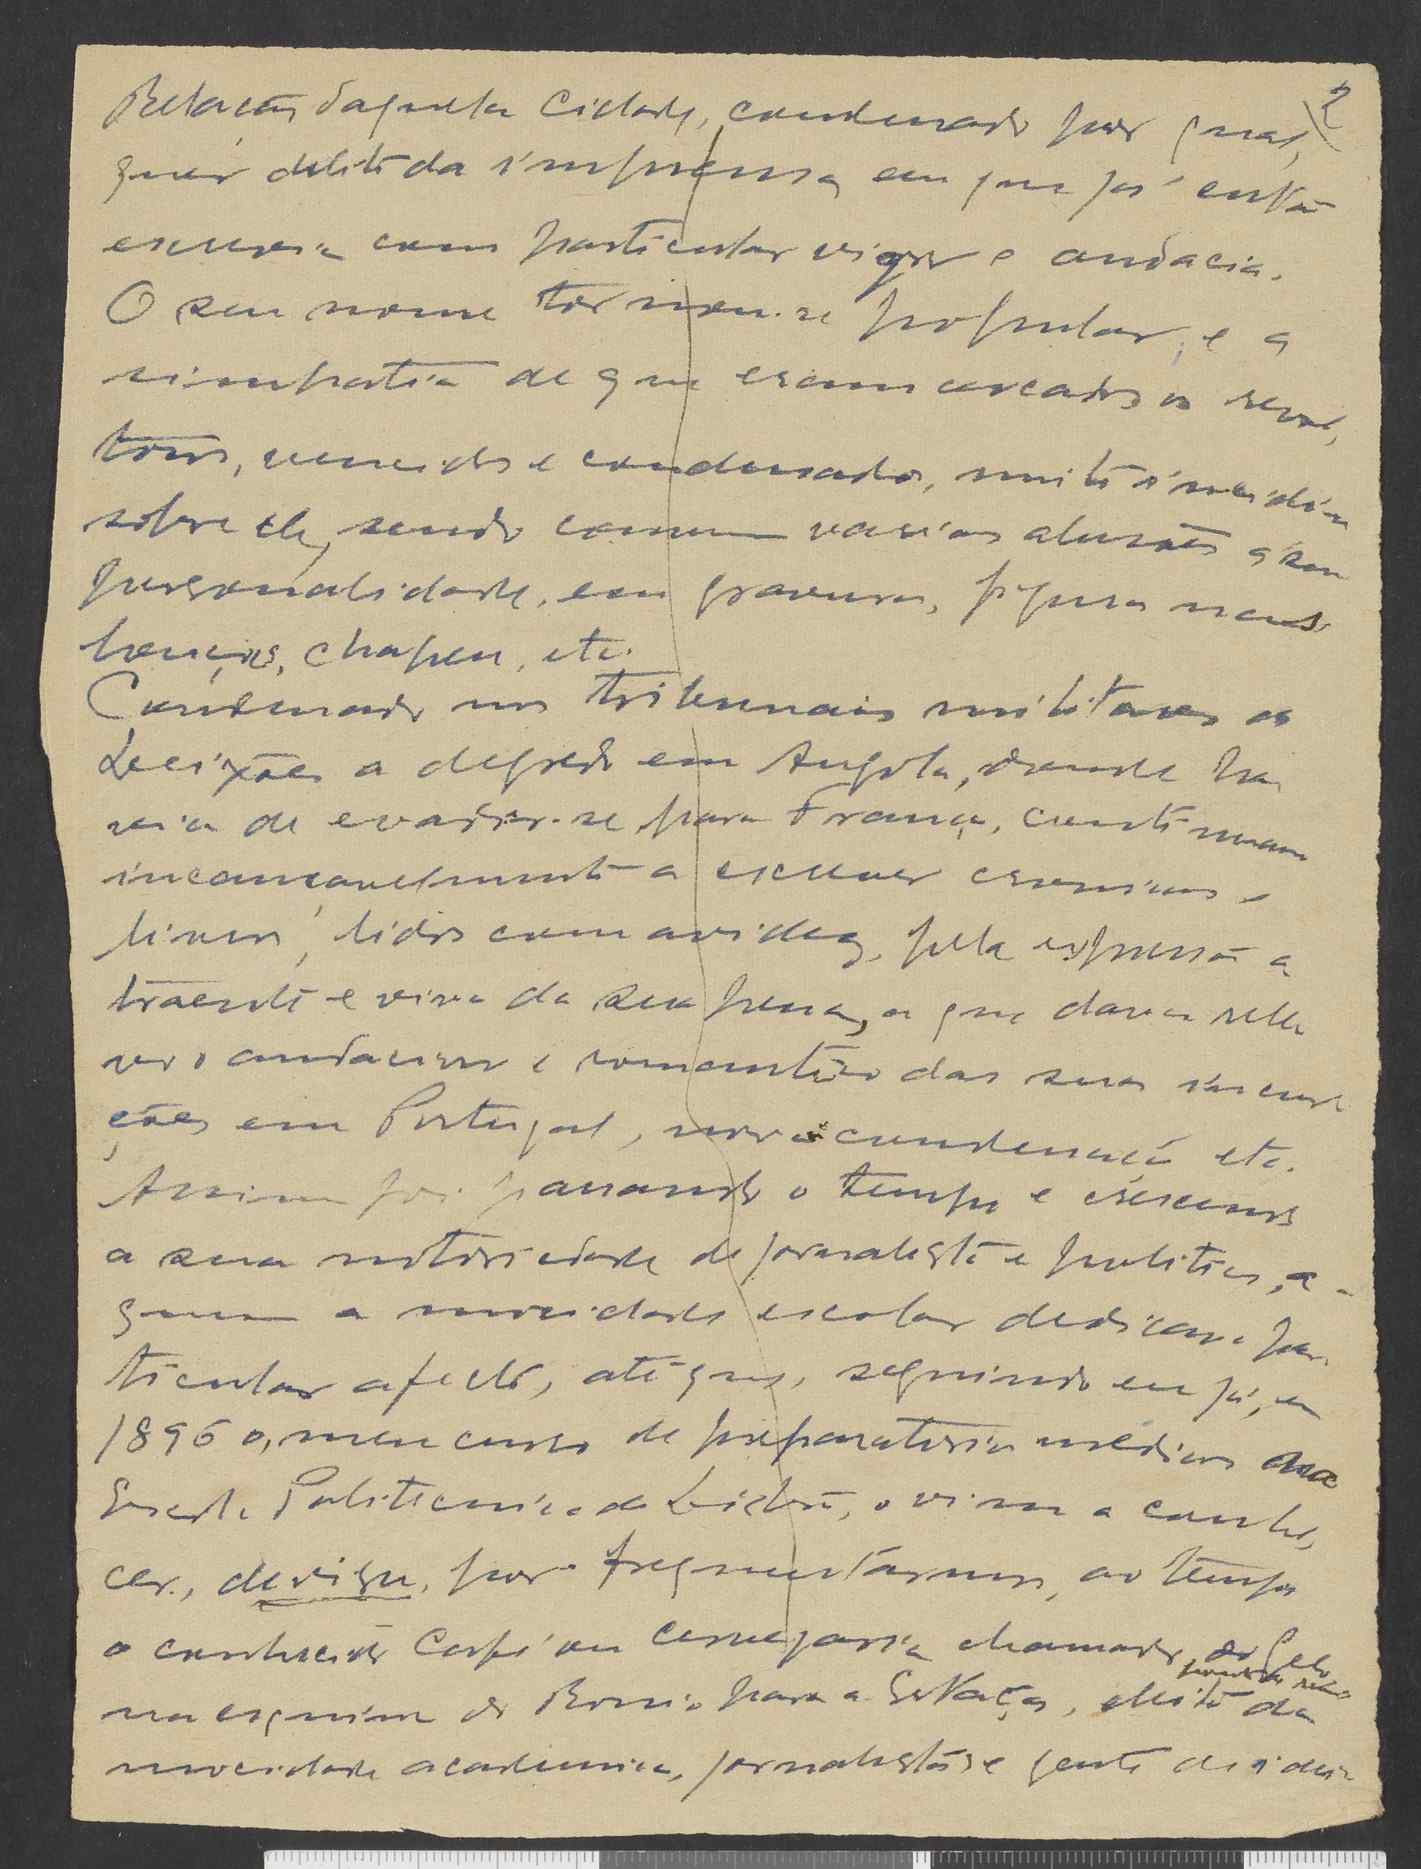 2
Relação daquela Cidade, condenado por qual,
quer delito da imprensa em que já então
escrevia com particular vigor e audacia.
O seu nome tornou-se popular, e a
simpatia de que eram cercados os revol,
tosos, vencidos e condenados, muito incidia
sobre ele, sendo comum varias alusões a sua
personalidade, em gravuras, figura nas
louças, chapeu, etc.
Condenado nos tribunais militares de
Leixões a degredo em Angola, donde ha
via de evadir-se para França, continuou
incansavelmente a escrever cronicas e
livros, lidos com avidez, pela expressão a
traente e viva da sua pena, a que dava rele
vo o audacioso e romantico das suas incur
ções em Portugal, nova condenação etc.
Assim foi passando o tempo e crescendo
a sua notoriedade de jornalista e politico, a
quem a mocidade escolar dedicava par
ticular afecto, até que, seguindo eu já, em
1896 o meu curso de preparatorios medicos na
Escola Politecnica de Lisboa, o vim a conhe,
cer, de visu, por frequentarmos, ao tempo
o conhecido Café ou cervejaria chamado do Gelo
na esquina do Rocio para a Estação, eleito da
mocidade academica, jornalistas e gente de ideia